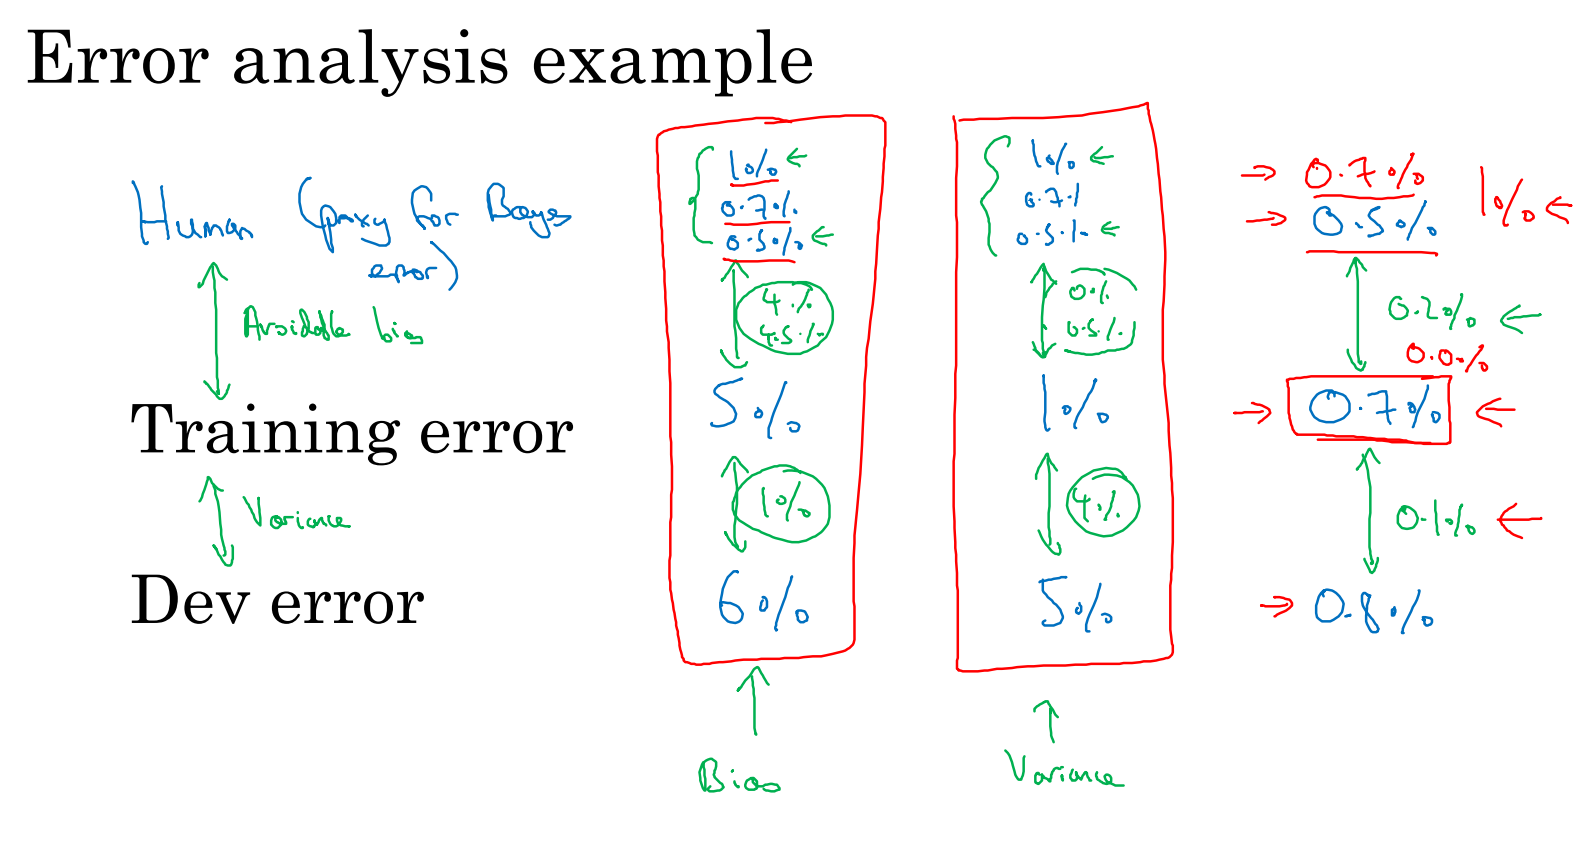 Error analysis example
Human (proxy for Bayes
error)
Avoidable bias
Training error
Variance
Dev error
1%
0.7%
0.5%
4%
4.5%
5%
1%
6%
Bias
1%
0.7%
0.5%
0%
0.5%
1%
4%
5%
Variance
0.7%
1%
0.5%
0.2%
0.0%
0.7%
0.1%
0.8%